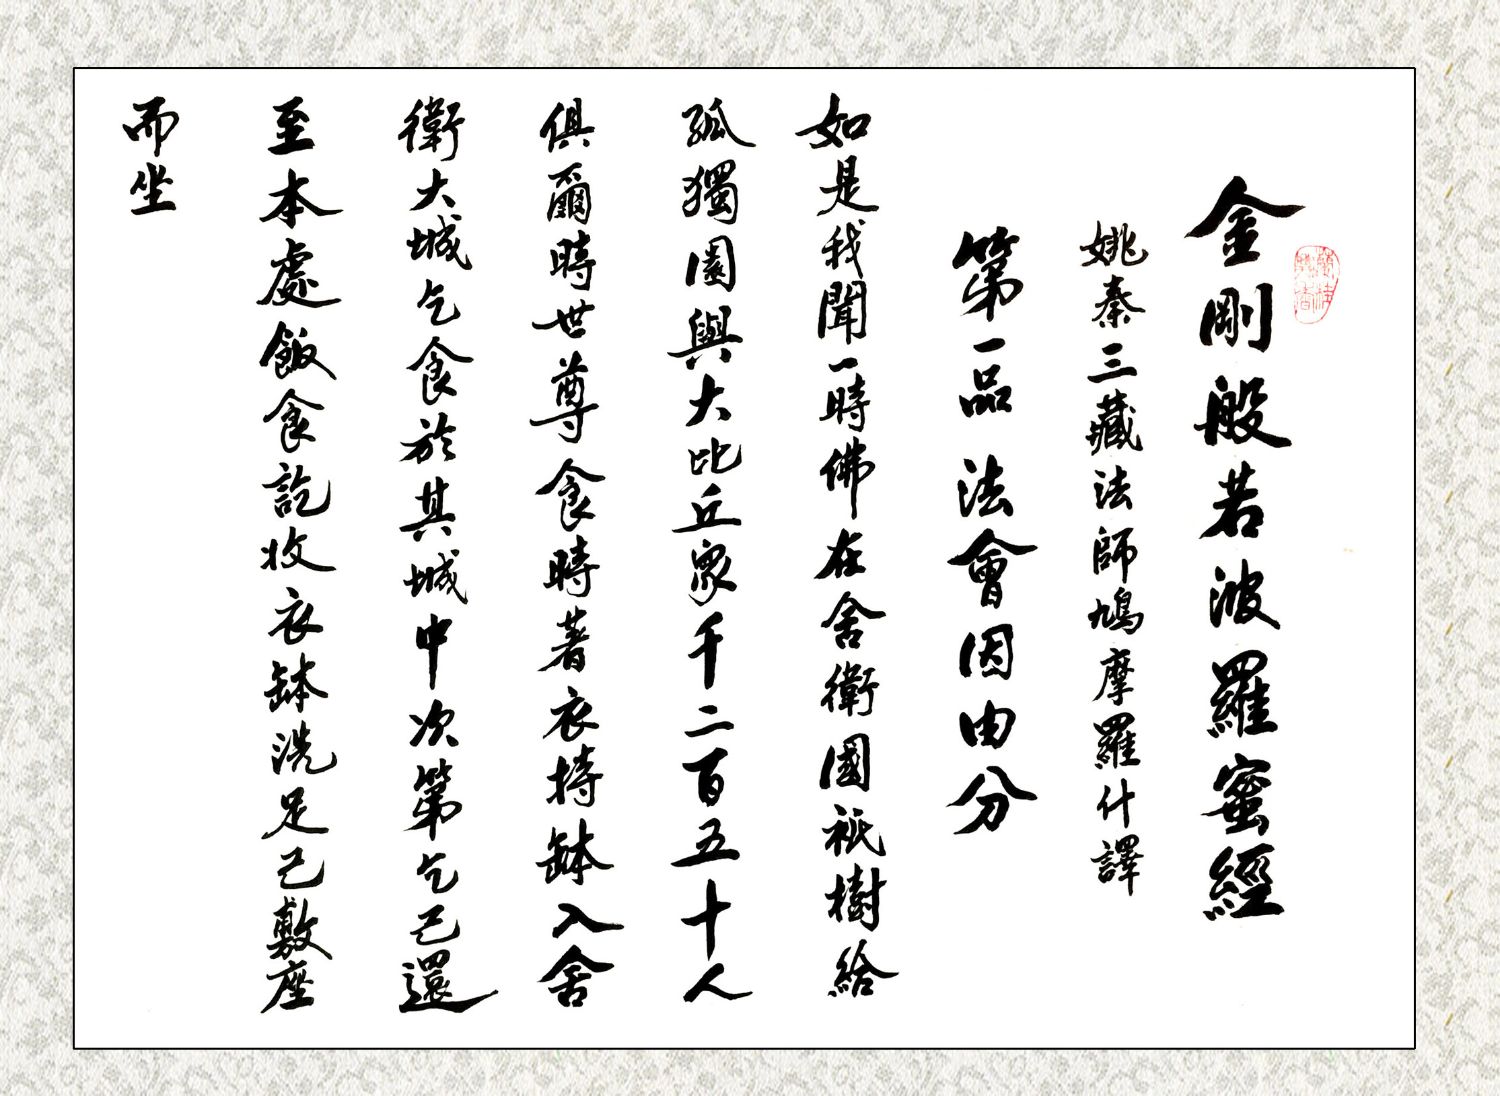 金剛般若波羅蜜經
姚秦三藏法師鳩摩羅什譯
第一品 法會因由分
如是我聞一時佛在舍衛國祇樹給
孤獨園與大比丘眾千二百五十人
俱爾時世尊食時著衣持缽入舍
衛大城乞食於其城中次第乞已還
至本處飯食訖收衣缽洗足已敷座
而坐